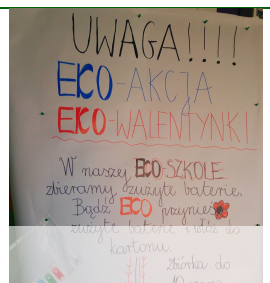 UWAGA!!!!
EKO-AKCJA
EKO-WALENTYNKI
W naszej ECO-SZKOLE
zbieramy zużyte baterie.
Bądź ECO przynieś
zużyte baterie i włóż do
kartonu.
Zbiórka do